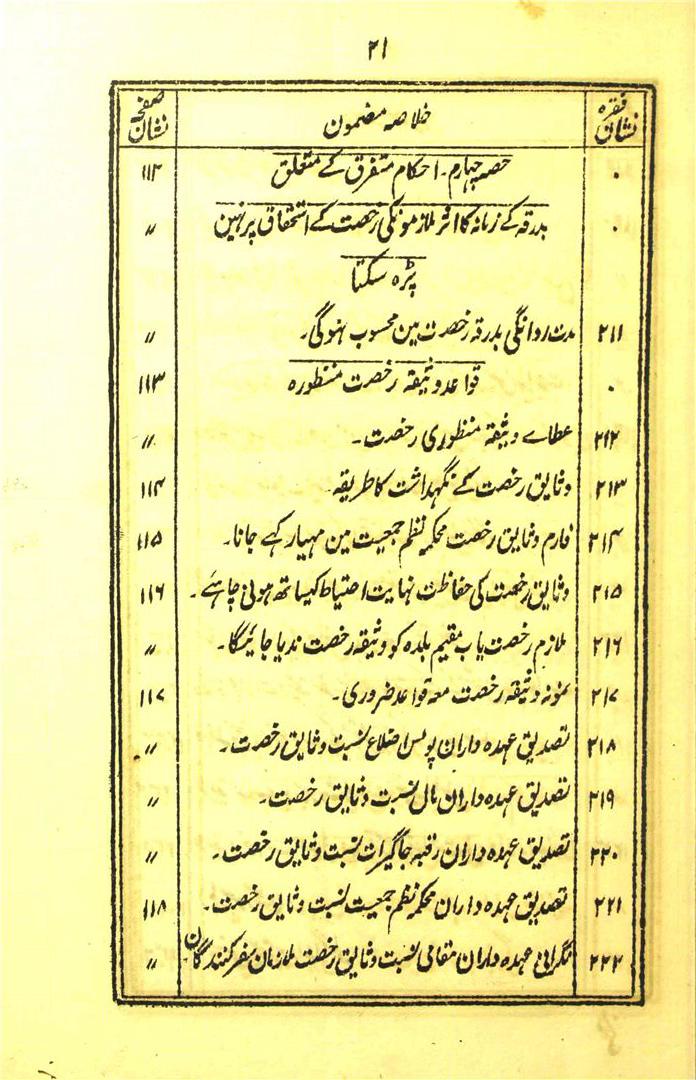 ۲۱
نشان فقرہ | خلاصہ مضمون | نشان صفحہ
۰ | حصہ چہارم۔ احکام متفرق کے متعلق | ۱۱۲
۰ | بدرقہ کے زمانہ کا اثر ملازمونکی رخصت کے استحقاق پر نہین | ״
پڑہ سکتا
۲۱۱ | مدت روانگی بدرقہ رخصت مین محسوب نہوگی۔ | ״
۰ | قواعد وثیقہ رخصت منظورہ | ۱۱۳
۲۱۲ | عطاے وثیقہ منظوری رخصت۔ | ״
۲۱۳ | وثایق رخصت کے نگہداشت کا طریقہ | ۱۱۴
۲۱۴ | فارم وثایق رخصت محکمہ نظم جمعیت مین مہیار کہے جانا۔ | ۱۱۵
۲۱۵ | وثایق رخصت کی حفاظت نہایت احتیاط کیساتھ ہونی چاہئے۔ | ۱۱۶
۲۱۶ | ملازم رخصت یاب مقیم بلدہ کو وثیقہ رخصت ندیا جائیگا۔ | ״
۲۱۷ | نمونہ وثیقہ رخصت معہ قواعد ضروری۔ | ۱۱۷
۲۱۸ | تصدیق عہدہ داران پولس اضلاع نسبت وثایق رخصت۔ | ״
۲۱۹ | تصدیق عہدہ داران مال نسبت وثایق رخصت۔ | ״
۲۲۰ | تصدیق عہدہ داران رقبہ جاگیرات نسبت وثایق رخصت۔ | ״
۲۲۱ | تصدیق عہدہ داران محکمہ نظم جمعیت نسبت وثایق رخصت۔ | ۱۱۸
۲۲۲ | نگرانی عہدہ داران مقامی نسبت وثایق رخصت ملازمان سفر کنندگان۔ | ״